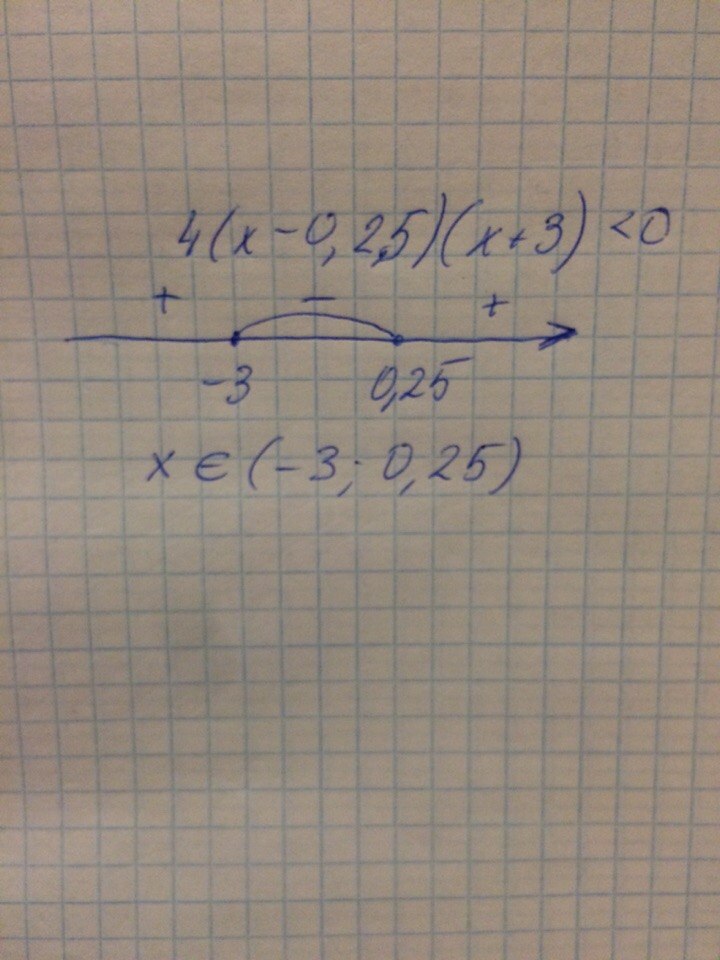 4(x-0,25)(x+3)<0
+ − +
-3 0,25
x∈(-3; 0,25)